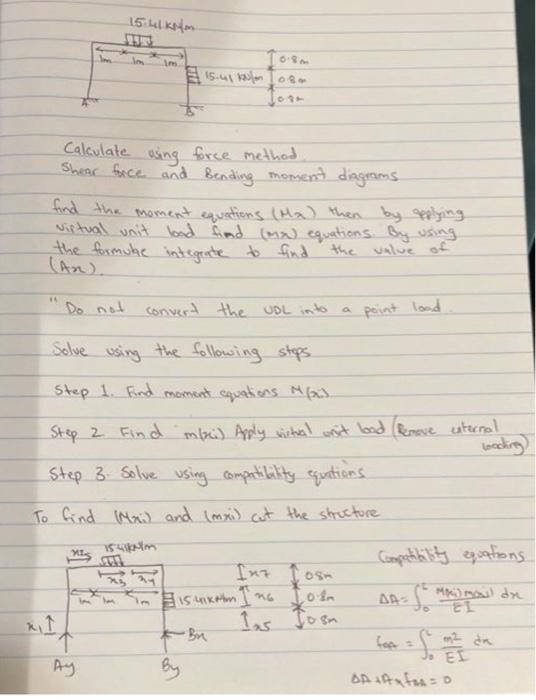 15.41 kN/m
1m 1m 1m
0.8m
15.41 kN/m 0.8m
0.8m
A B
Calculate using force method.
Shear force and Bending moment diagrams
find the moment equations (Mx) then by applying
virtual unit load find (mx) equations. By using
the formube integrate to find the value of
(Ax).
"Do not convert the UDL into a point load.
Solve using the following steps
Step 1. Find moment equations M(xi)
Step 2 Find m(xi) Apply virtual unit load (Remove external
loading)
Step 3. Solve using compatibility equations
To find (Mxi) and (mxi) cut the structure
Compatibility equations
x2 15.41kN/m
x3 x4
x7 0.8m
1m 1m 1m
15.41kN/m x6 0.8m
x5 0.8m
x1
Bx
Ay By
ΔA = ∫₀ᴸ M(xi) m(xi) dx / EI
fAA = ∫₀ᴸ m² / EI dx
ΔA + Ax fAA = 0